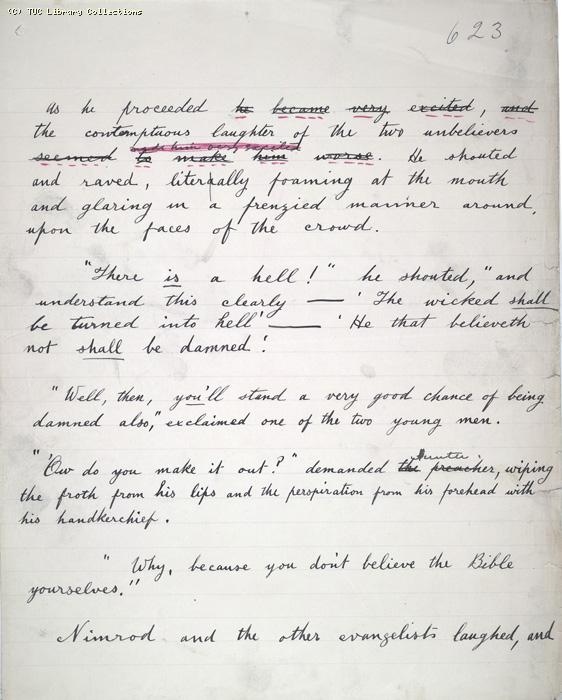 (C) TUC Library Collections
623
As he proceeded he became very excited, and
the contemptuous laughter of the two unbelievers
made him very excited
seemed to make him worse. He shouted
and raved, literally foaming at the mouth
and glaring in a frenzied manner around,
upon the faces of the crowd.
"There is a hell!" he shouted, "and
understand this clearly — 'The wicked shall
be turned into hell' — 'He that believeth
not shall be damned!'
"Well, then, you'll stand a very good chance of being
damned also," exclaimed one of the two young men.
Hunter
"'Ow do you make it out?" demanded the preacher, wiping
the froth from his lips and the perspiration from his forehead with
his handkerchief.
"Why, because you don't believe the Bible
yourselves."
Nimrod and the other evangelists laughed, and